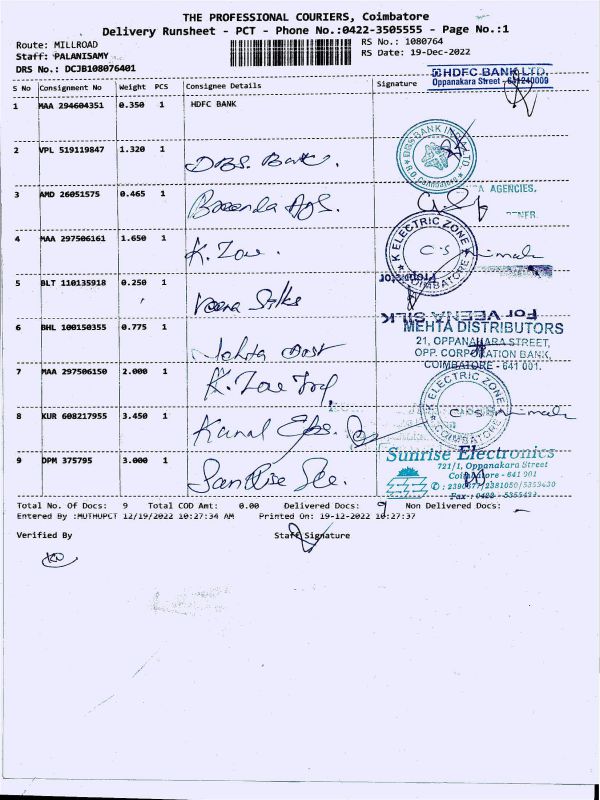 THE PROFESSIONAL COURIERS, Coimbatore
Delivery Runsheet - PCT - Phone No.:0422-3505555 - Page No.:1
Route: MILLROAD
RS No.: 1080764
Staff: PALANISAMY
RS Date: 19-Dec-2022
DRS No.: DCJB108076401
HDFC BANK LTD.
Oppanakara Street - 641240009
S No Consignment No Weight PCS Consignee Details Signature
1 MAA 294604351 0.350 1 HDFC BANK
2 VPL 519119847 1.320 1 DBS. Bank.
DBS BANK INDIA LTD
R.O. Coimbatore
3 AMD 26051575 0.465 1
AGENCIES,
4 MAA 297506161 1.650 1 K. Zone.
K ELECTRIC ZONE
C-S
COIMBATORE
5 BLT 110135918 0.250 1 Veena Silks
Proprietor
For VEENA SILK
6 BHL 100150355 0.775 1 Mehta
MEHTA DISTRIBUTORS
21, OPPANAKARA STREET,
OPP. CORPORATION BANK,
COIMBATORE - 641 001.
7 MAA 297506150 2.000 1 K. Zone
K ELECTRIC ZONE
C-S
COIMBATORE
8 KUR 608217955 3.450 1
9 DPM 375795 3.000 1 SanRise Ele.
Sunrise Electronics
721/1, Oppanakara Street
Coimbatore - 641 001
Total No. Of Docs: 9 Total COD Amt: 0.00 Delivered Docs: 9 Non Delivered Docs: -
Entered By :MUTHUPCT 12/19/2022 10:27:34 AM Printed On: 19-12-2022 10:27:37
Verified By
Staff Signature